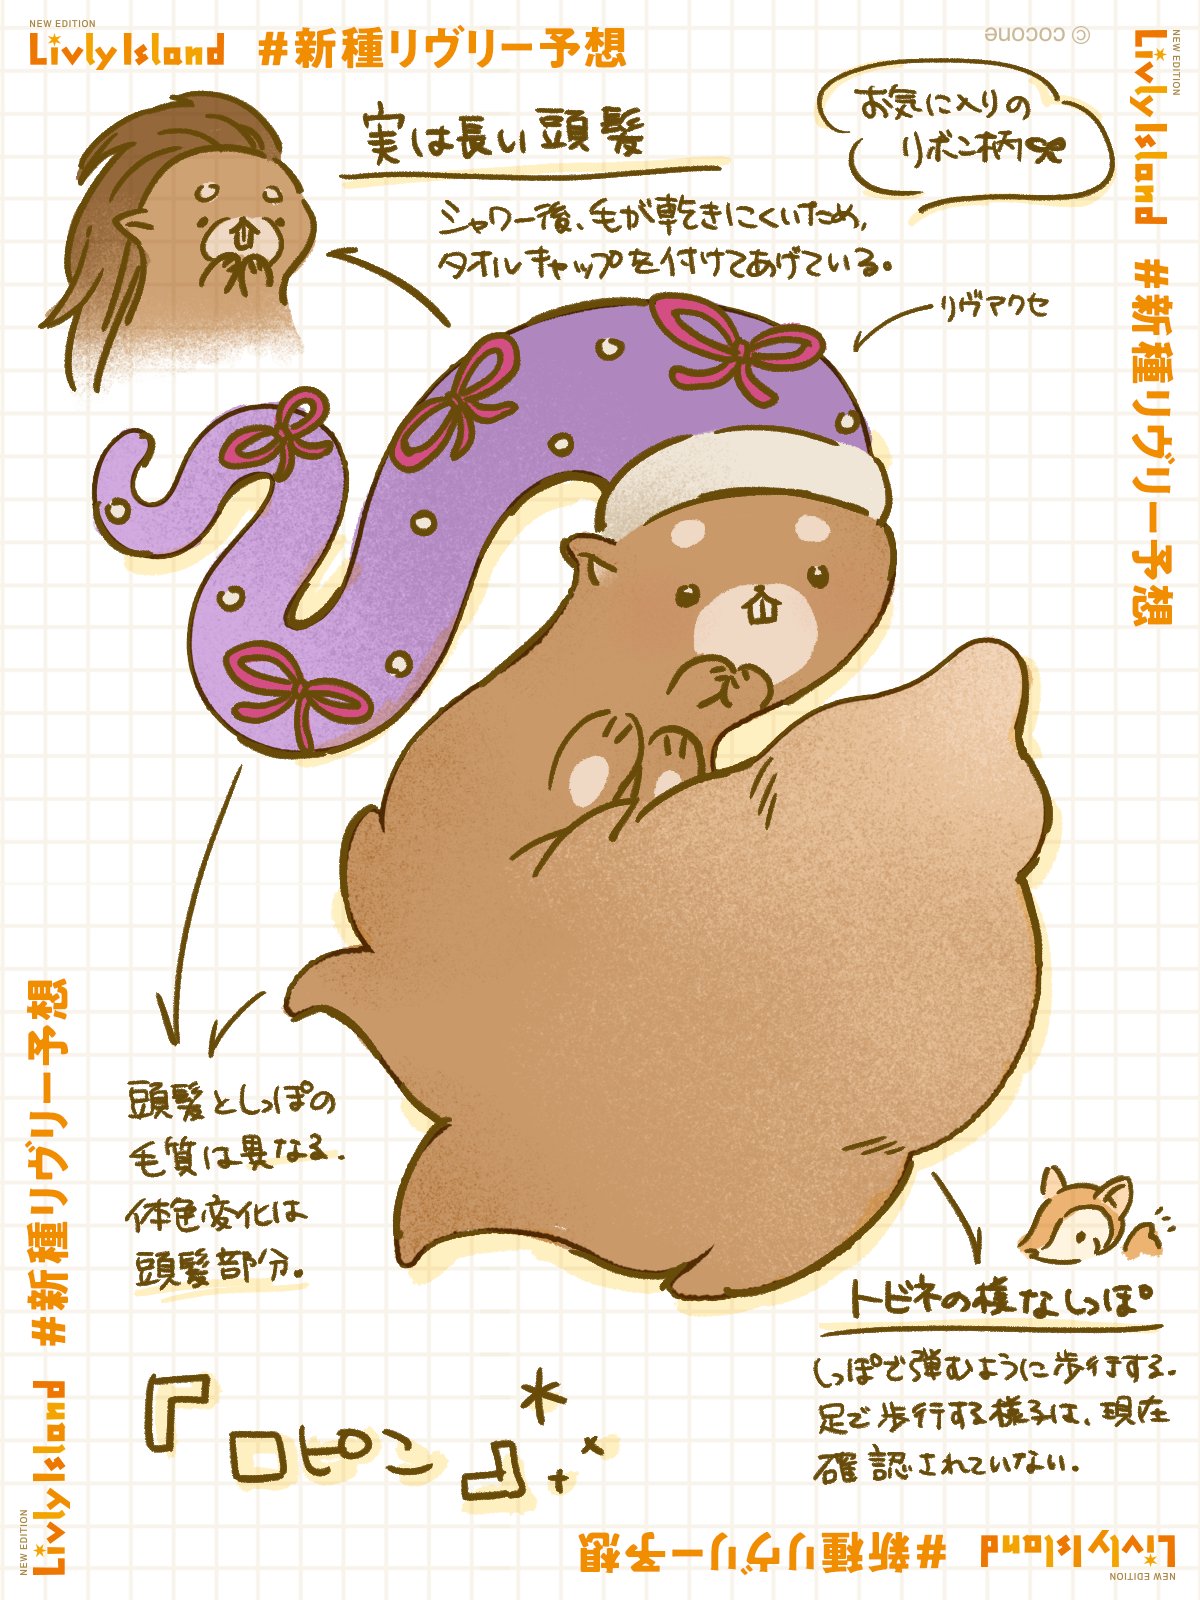 NEW EDITION
Livly Island #新種リヴリー予想
© cocone
NEW EDITION
Livly Island #新種リヴリー予想
実は長い頭髪
シャワー後、毛が乾きにくいため、
タオルキャップを付けてあげている。
お気に入りの
リボン柄
リヴアクセ
頭髪としっぽの
毛質は異なる.
体色変化は
頭髪部分。
トビネの様なしっぽ
しっぽで弾むように歩行する.
足で歩行する様子は、現在
確認されていない.
『ロピン』
NEW EDITION
Livly Island #新種リヴリー予想
NEW EDITION
Livly Island #新種リヴリー予想